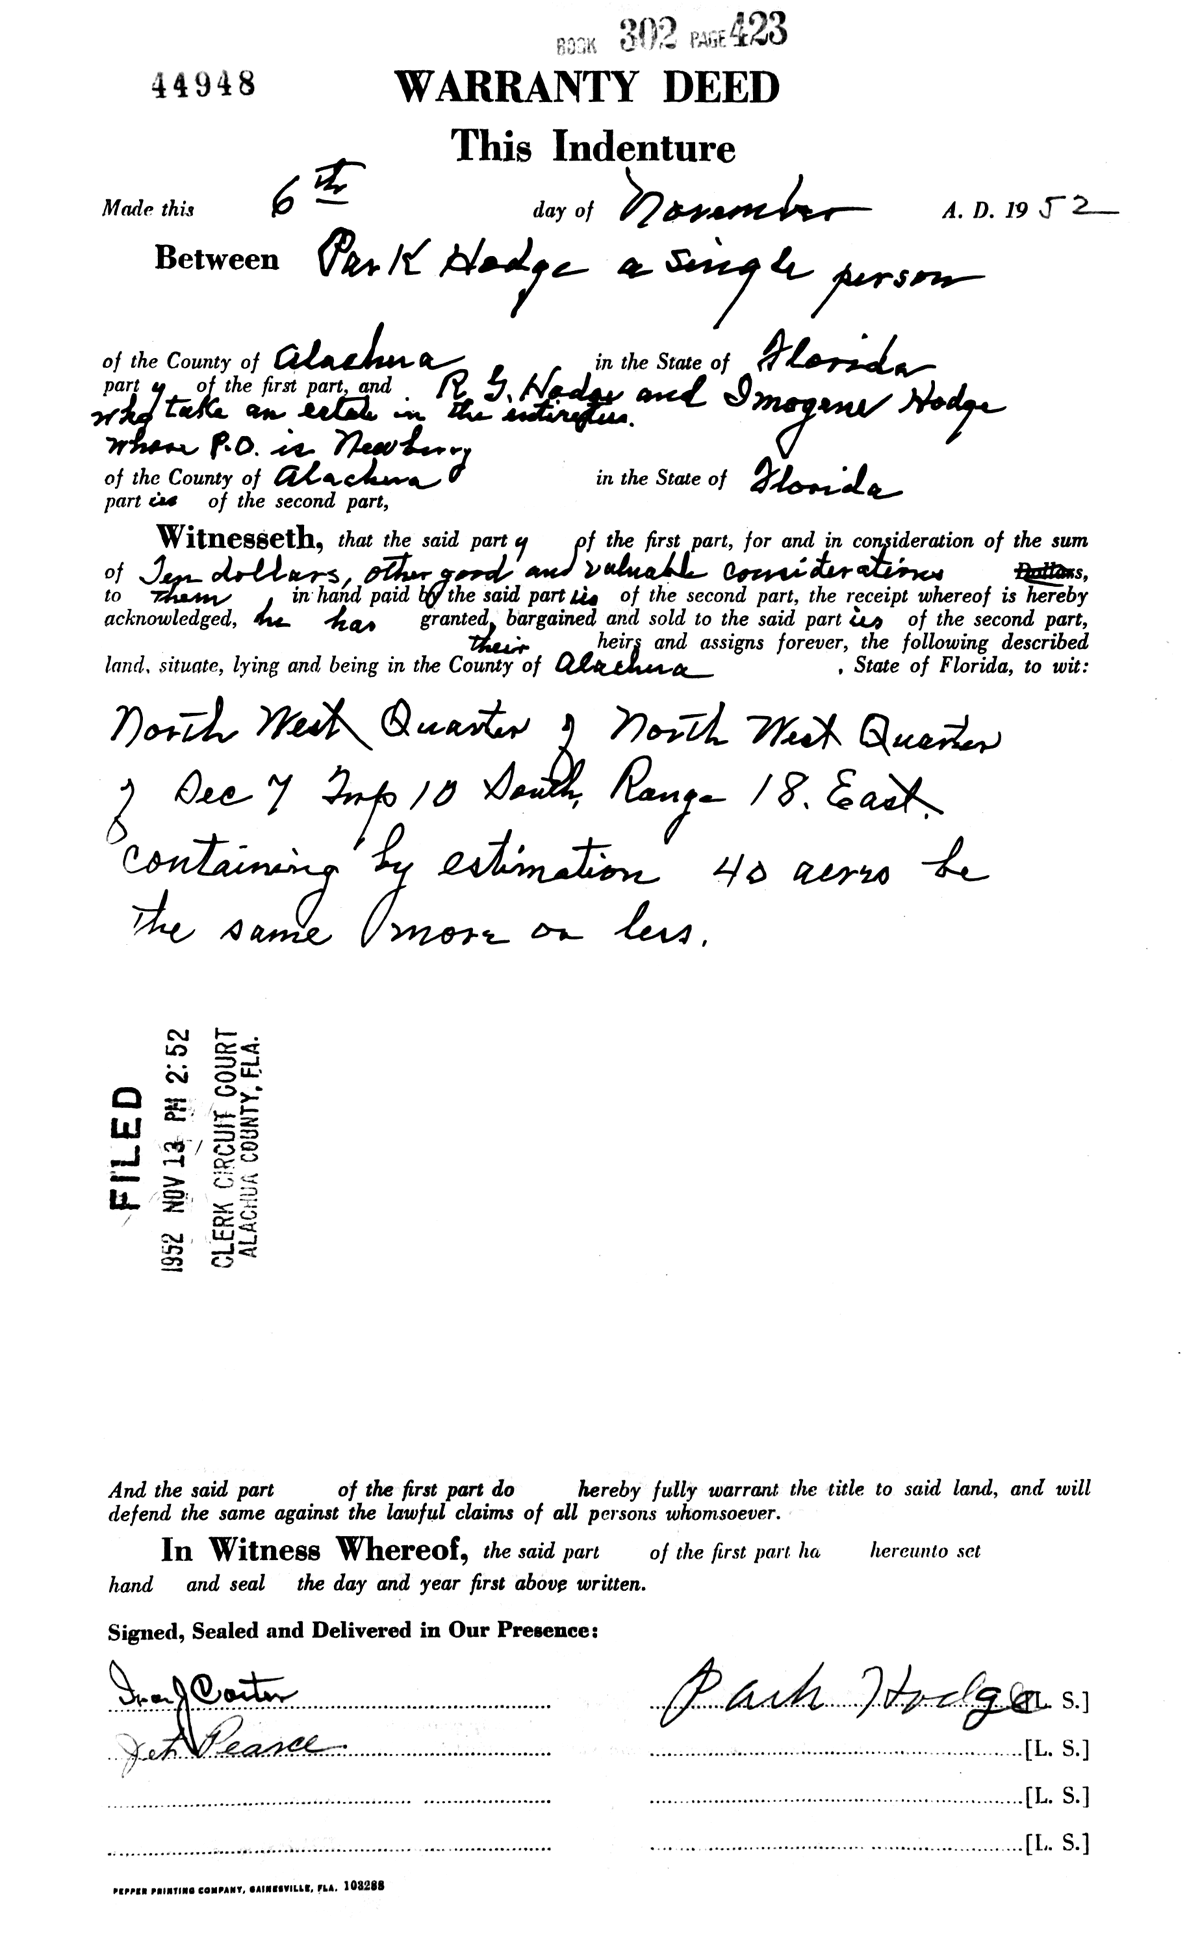 BOOK 302 PAGE 423
44948 WARRANTY DEED
This Indenture
Made this 6th day of November A. D. 1952
Between Park Hodge a single person
of the County of Alachua in the State of Florida
part y of the first part, and R G. Hodge and Imogene Hodge
who take an estate in the entireties.
whose P.O. is Newberry
of the County of Alachua in the State of Florida
part ies of the second part,
Witnesseth, that the said part y of the first part, for and in consideration of the sum
of Ten dollars, other good and valuable considerations Dollars,
to them in hand paid by the said part ies of the second part, the receipt whereof is hereby
acknowledged, he has granted, bargained and sold to the said part ies of the second part,
their heirs and assigns forever, the following described
land, situate, lying and being in the County of Alachua , State of Florida, to wit:
North West Quarter of North West Quarter
of Sec 7 Twp 10 South, Range 18. East.
containing by estimation 40 acres be
the same more or less.
FILED
1952 NOV 13 PM 2:52
CLERK CIRCUIT COURT
ALACHUA COUNTY, FLA.
And the said part of the first part do hereby fully warrant the title to said land, and will
defend the same against the lawful claims of all persons whomsoever.
In Witness Whereof, the said part of the first part ha hereunto set
hand and seal the day and year first above written.
Signed, Sealed and Delivered in Our Presence:
Ira J Carter Park Hodge [L. S.]
Pearce [L. S.]
[L. S.]
[L. S.]
PEPPER PRINTING COMPANY, GAINESVILLE, FLA. 103288